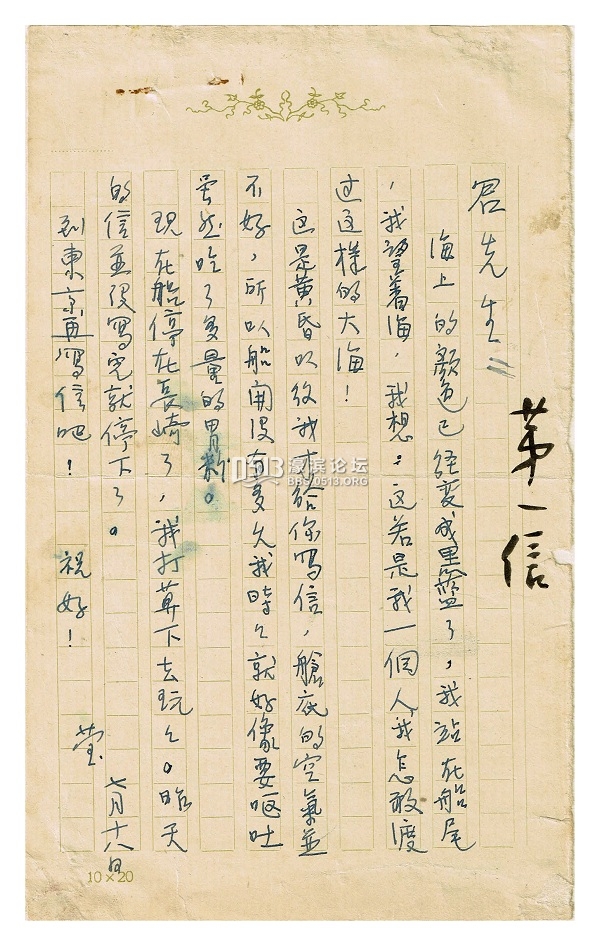 苐一信
君先生=
海上的颜色已經变成黑藍了,我站在船尾
,我望着海,我想。这若是我一個人,我怎敢渡
过这樣的大海!
这是黄昏以後我才給你寫信,艙底的空氣並
不好,所以船開没有多久我時々就好像要呕吐
虽然吃了多量的胃粉。
現在船停在長崎了,我打算下去玩々。昨天
的信並没寫完就停下了。
到東京再寫信吧! 祝好!
莹
七月十八日
10×20
0513 濠滨论坛
BBS.0513.ORG